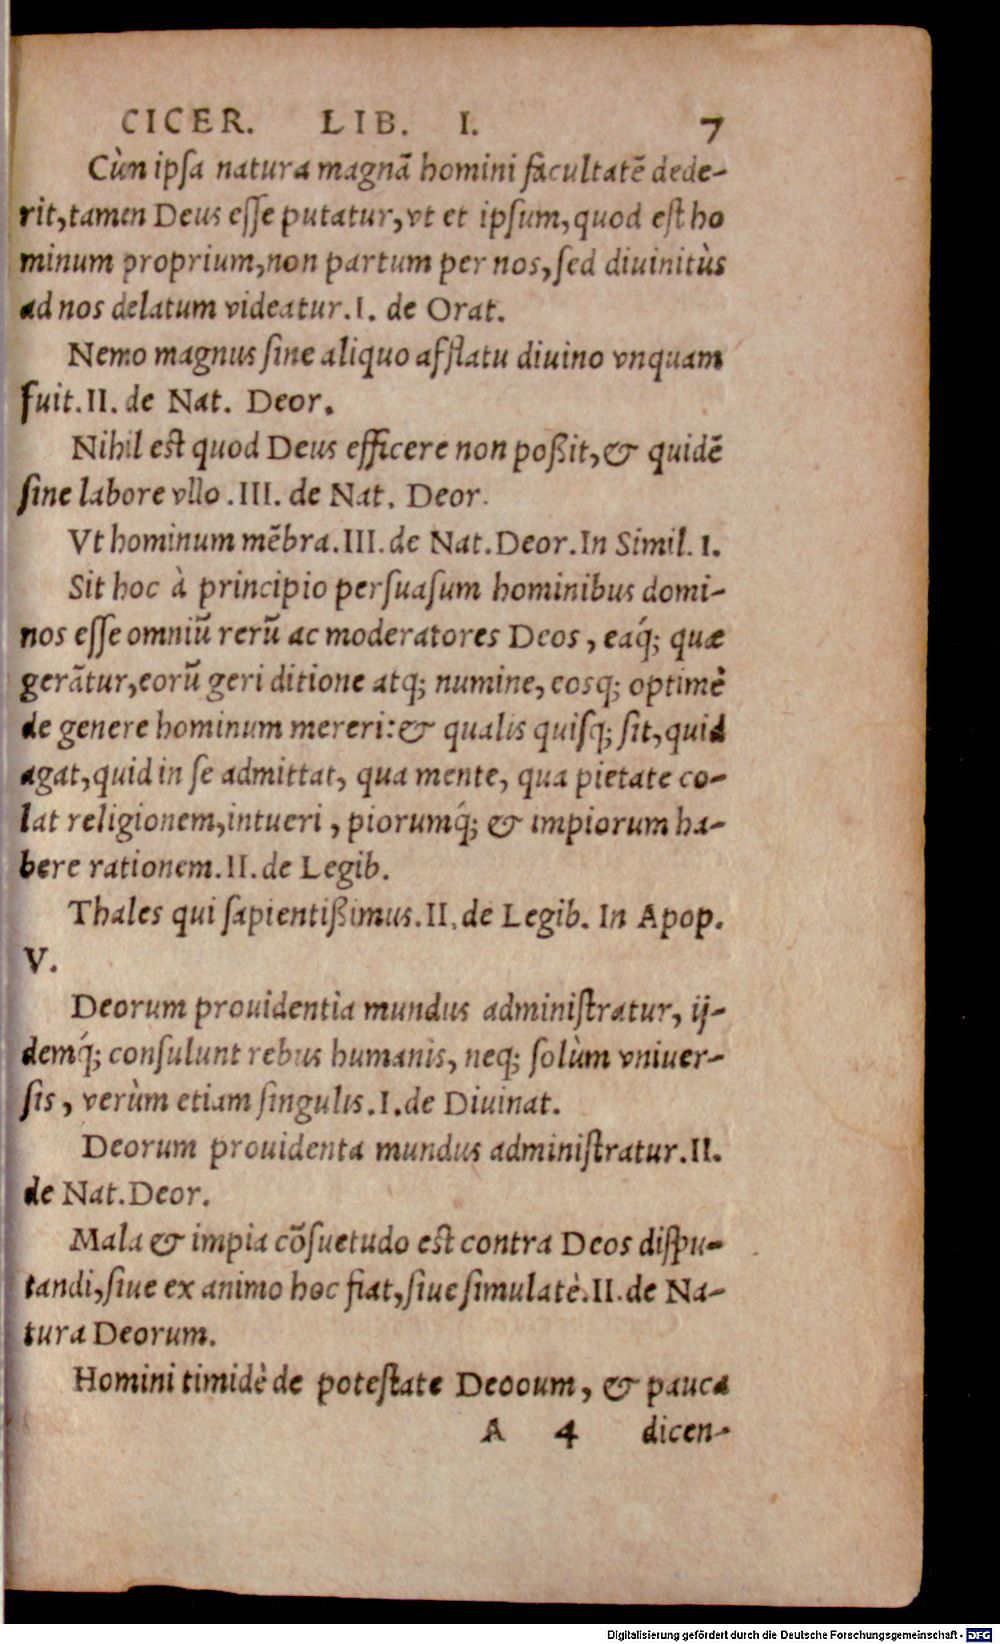 CICER. LIB. I. 7
Cùm ipſa natura magnā homini facultatē dede-
rit, tamen Deus eſſe putatur, vt et ipſum, quod eſt ho
minum proprium, non partum per nos, ſed diuinitùs
ad nos delatum videatur. I. de Orat.
Nemo magnus ſine aliquo afflatu diuino vnquam
fuit. II. de Nat. Deor.
Nihil eſt quod Deus efficere non poßit, & quidē
ſine labore vllo. III. de Nat. Deor.
Vt hominum mēbra. III. de Nat. Deor. In Simil. I.
Sit hoc à principio perſuaſum hominibus domi-
nos eſſe omniū rerū ac moderatores Deos, eaq́; quæ
gerātur, eorū geri ditione atq; numine, eosq; optimè
de genere hominum mereri: & qualis quiſq; ſit, quid
agat, quid in ſe admittat, qua mente, qua pietate co-
lat religionem, intueri, piorumq́; & impiorum ha-
bere rationem. II. de Legib.
Thales qui ſapientißimus. II. de Legib. In Apop.
V.
Deorum prouidentia mundus adminiſtratur, ij-
demq́; conſulunt rebus humanis, neq; ſolùm vniuer-
ſis, verùm etiam ſingulis. I. de Diuinat.
Deorum prouidenta mundus adminiſtratur. II.
de Nat. Deor.
Mala & impia cōſuetudo eſt contra Deos diſpu-
tandi, ſiue ex animo hoc fiat, ſiue ſimulatè. II. de Na-
tura Deorum.
Homini timidè de poteſtate Deooum, & pauca
A 4 dicen-
Digitalisierung gefördert durch die Deutsche Forschungsgemeinschaft - DFG